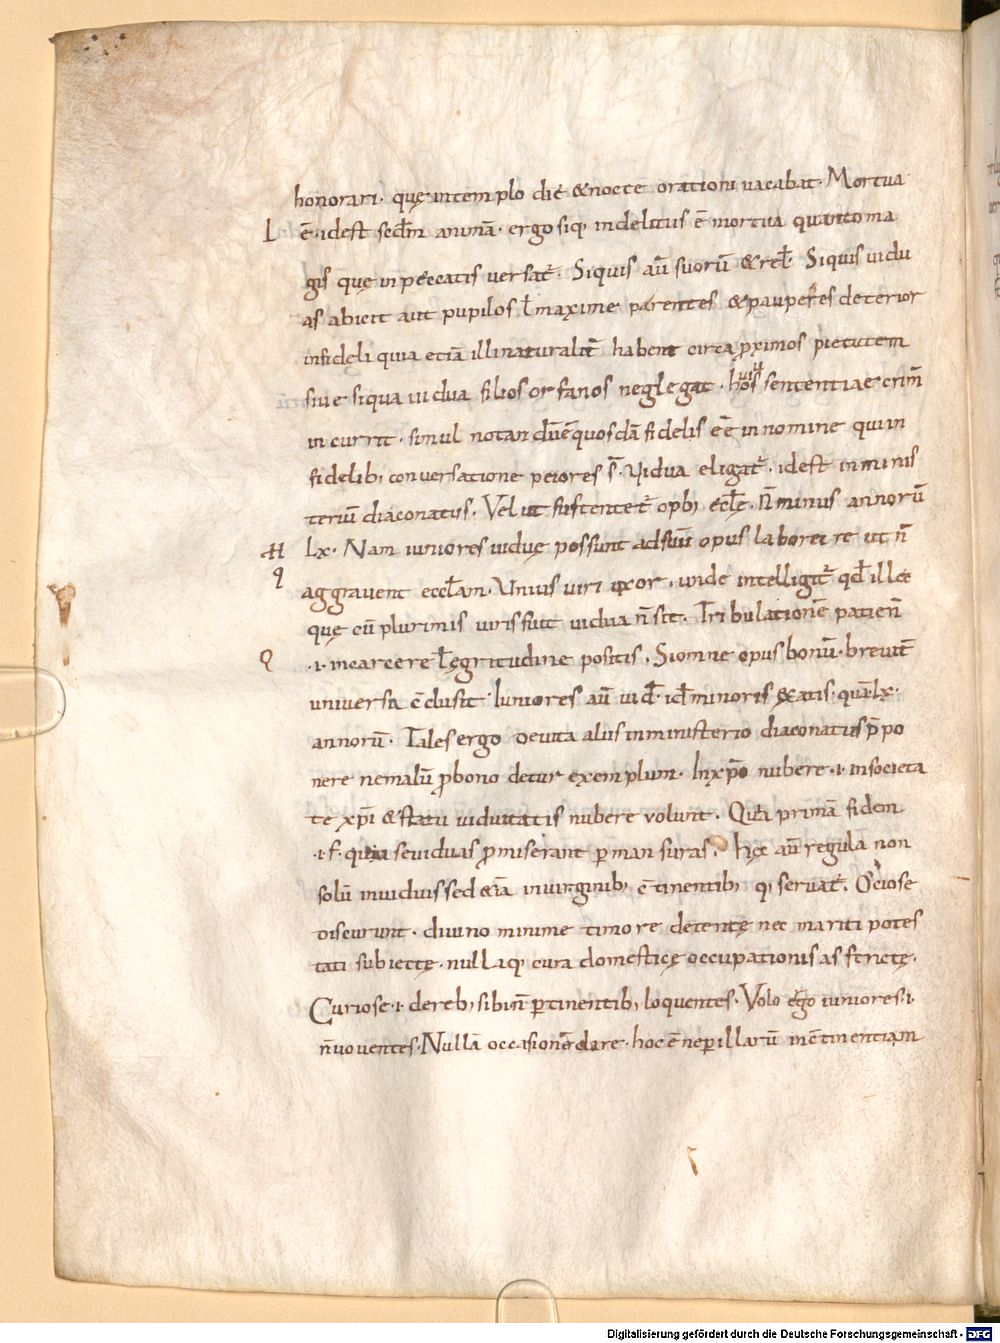 honorari. quę in templo die & nocte orationi vacabat. Mortua
L ē. id est secdm̄ animā. ergo siq; in delitiis ē mortua quanto ma
gis quę in peccatis versat̄. Siquis aū suorū & rel̄. Siquis vidu
as abicit aut pupilos ł maxime parentes & pauperes deterior
infideli quia etiā illi naturalit̄ habent circa ꝓximos pietatem
sive siqua vidua filios orfanos neglegat. hos sententiae crim̄
incurrit. simul notandū ē quosdā fidelis eē in nomine qui in
fidelib; conversatione peiores s̄. Vidua eligat̄. id est in minis
teriū diaconatus. Vel ut sustentet̄ opb; eccłę. n̄ minus annorū
lx. Nam iuniores viduę possunt ad suū opus laborare ut n̄
aggravent eccłam. Unius viri uxor. unde intelligit̄ qd̄ illae
quę cū plurimis viris fuit vidua n̄ sit. Tribulationē patien̄
.i. in carcere ł ęgritudine positis. Si omne opus bonū. brevit̄
universa c̄clusit. Iuniores aū vid̄. id̄ minoris ętatis. quā lx.
annorū. Tales ergo devita aliis in ministerio diaconatus p̄po
nere ne malū ꝓ bono detur exemplum. In xp̄o nubere .i. in societa
te xp̄i & statu viduitatis nubere volunt. Quia primā fidem
.i. f. quia se viduas ꝓmiserant ꝑmansuras. Hęc aū regula non
solū in viduis sed & iā in virginib; c̄tinentib; q; servat̄. Ociose
discurrunt. divino minime timore detentę nec mariti potes
tati subiectę. nullaq; cura domesticę occupationis asstrictę.
Curiose .i. de reb; sibi n̄ ꝑtinentib; loquentes. Volo ergo iuniores .i.
n̄ voventes. Nullā occasionē dare. hoc ē ne ꝑ illarū inc̄tinentiam
Digitalisierung gefördert durch die Deutsche Forschungsgemeinschaft - DFG